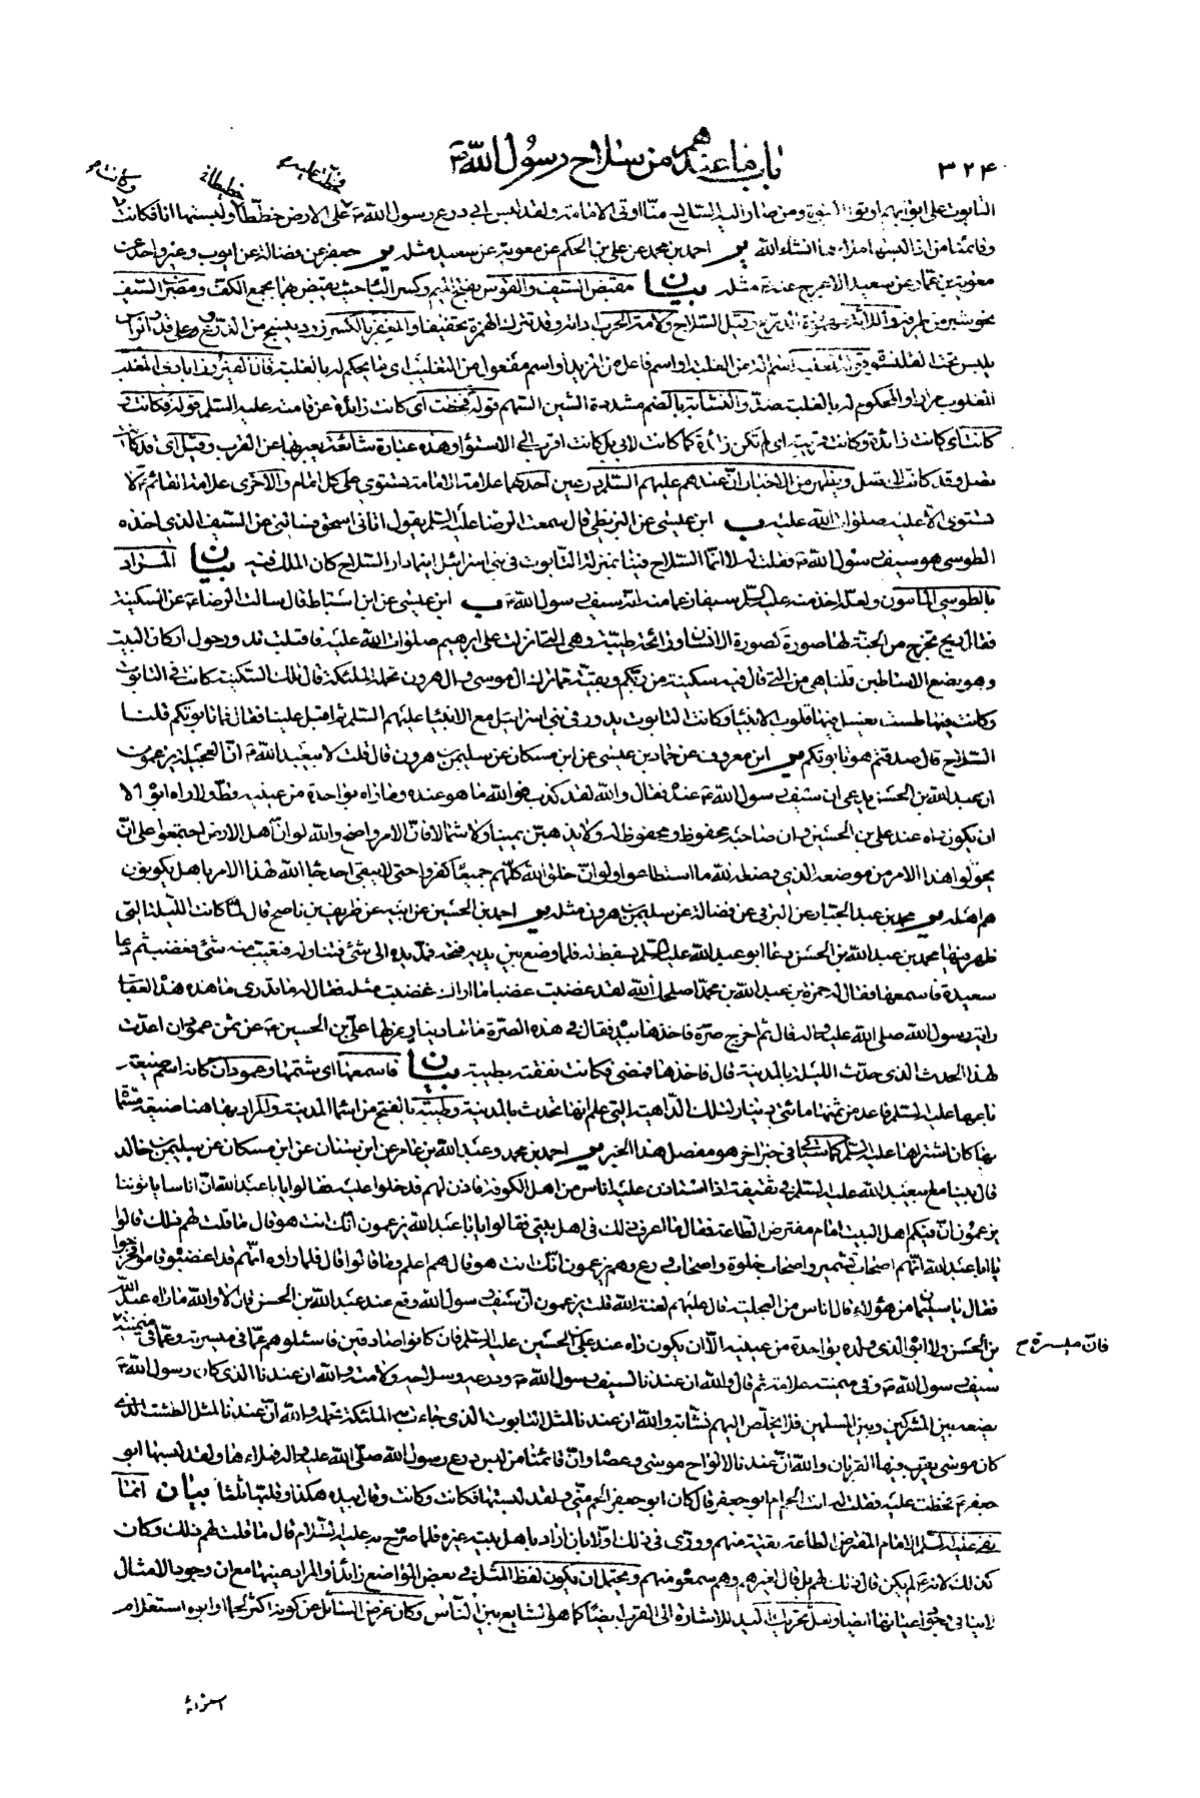 ٣٢٤
باب ما عندهم من سلاح رسول الله ص
التابوت على ابوابهم اوتوا النبوة ومن صار اليه السلاح منا اوتى الامامة ولقد لبس ابى درع رسول الله ص على الارض خططا ولبستها انا فكانت
وقائمنا من اذا لبسها ملاها انشاء الله ير احمد بن محمد عن على بن الحكم عن معوية عن سعيد مثله ير جعفر عن فضالة عن ايوب وغير واحد عن
معوية بن عمار عن سعيد الاعرج عنه ع مثله بيان مقبض السيف والقوس بفتح الميم وكسر الباء حيث يقبض بهما بجمع الكف
السلاح ولامة الحرب اداته وقد تترك الهمزة تخفيفا والمغفر بالكسر زرد ينسج من الدروع على قدر الراس
يلبس تحت القلنسوة
المغلوب مرارا والمحكوم له بالغلبة ضد والنشابة بالضم مشددة الشين السهم قوله فخطت اى كانت زائدة عن قامته عليه السلم قوله فكانت و
كانت اى كانت زائدة وكانت قريبة اى لم تكن زائدة كما كانت لابى بل كانت اقرب الى الاستواء وهذه عبارة شائعة يعبر بها عن القرب وقيل اى قد كانت
تفضل وقد كانت لا تفضل ويظهر من الاخبار ان عندهم عليهم السلام درعين احدهما علامة الامامة تستوى على كل امام والاخرى علامة القائم ع لا
تستوى الا عليه صلوات الله عليه ب ابن عيسى عن البزنطى قال سمعت الرضا عليه السلم يقول اتانى اسحق فسالنى عن السيف الذى اخذه
الطوسى هو سيف رسول الله ص فقلت له لا انما السلاح فينا بمنزلة التابوت فى بنى اسرائيل اينما دار السلاح كان الملك فيه بيان المراد
بالطوسى المامون ولعله اخذ منه عليه السلم سيفا زعما منه انه سيف رسول الله ص ب ابن عيسى عن ابن اسباط قال سالت الرضا ع عن السكينة
فقال ريح تخرج من الجنة لها صورة كصورة الانسان ورائحة طيبة وهى التى نزلت على ابرهيم صلوات الله عليه فاقبلت تدور حول اركان البيت
وهو يضع الاساطين قلنا هى من التى قال فيه سكينة من ربكم وبقية مما ترك ال موسى وال هرون تحمله الملئكة قال تلك السكينة كانت فى التابوت
وكانت فيها طست يغسل فيها قلوب الانبياء وكانت التابوت يدور فى بنى اسرائيل مع الانبيا عليهم السلم ثم اقبل علينا فقال فما تابوتكم قلنا
السلاح قال صدقتم هو تابوتكم ير ابن معروف عن حماد بن عيسى عن ابن مسكان عن سليمن بن هرون قال قلت لابى عبد الله ع ان العجلية يزعمون
ان عبد الله بن الحسن يدعى ان سيف رسول الله ص عنده فقال والله لقد كذب فوالله ما هو عنده وما راه بواحدة من عينيه قط ولا راه ابوه الا
ان يكون راه عند على بن الحسين وان صاحبه محفوظ ومحفوظ له ولا يذهبن يمينا ولا شمالا فان الامر واضح والله لو ان اهل الارض اجتمعوا على ان
يحولوا هذا الامر من موضعه الذى وضعه الله ما استطاعوا ولو ان خلق الله كلهم جميعا كفروا حتى لا يبقى احد جاء الله لهذا الامر باهل يكونون
هم اهله ير محمد بن عبد الجبار عن البرقى عن فضالة عن سليمن بن هرون مثله ير احمد بن الحسين عن ابيه عن ظريف بن ناصح قال لما كانت الليلة التى
ظهر فيها محمد بن عبد الله بن الحسن دعا ابو عبد الله عليه السلم بسفط له فلما وضع بين يديه فتحه فمد يده الى شئ فتناوله فتغيب منه شئ فغضب ثم دعا
سعيدة فاسمعها فقال له حمزة بن عبد الله بن محمد اصلحك الله لقد غضبت غضبا ما اراك غضبت مثله فقال له ما تدرى ما هذه هذه العقاب
راية رسول الله صلى الله عليه واله قال ثم اخرج صرة فاخذها بيده فقال فى هذه الصرة مائتا دينار عزلها على بن الحسين ع عن ثمن عمودان اعدت
لهذا الحدث الذى حدث الليلة بالمدينة قال فاخذها فمضى فكانت نفقته بطيبة بيان فاسمعها اى شتمها وعمودان كانه اسم ضيعة
باعها عليه السلم فاعد من ثمنها مائتى دينار لتلك الداهية التى علم انها تحدث بالمدينة وطيبة بالفتح من اسماء المدينة والمراد بها هنا ضيعة مسماة
بها كان اشتراها عليه السلم كما سياتى فى خبر اخر هو مفصل هذا الخبر ير احمد بن محمد وعبد الله بن عامر عن ابن سنان عن ابن مسكان عن سليمن بن خالد
قال بينا مع ابى عبد الله عليه السلم فى ثقيفة اذا استاذن عليه اناس من اهل الكوفة فاذن لهم فدخلوا عليه فقالوا يا ابا عبد الله ان اناسا ياتوننا
يزعمون ان فيكم اهل البيت امام مفترض الطاعة فقال ما اعرف ذلك فى اهل بيتى فقالوا يا ابا عبد الله يزعمون انك انت هو قال ما قلت لهم ذلك قالوا
يا ابا عبد الله انهم اصحاب تشمير واصحاب خلوة واصحاب ورع وهم يزعمون انك انت هو قال هم اعلم وما قالوا قال فلما راوه انهم قد اغضبوه قاموا فخرجوا
فقال يا سليمان من هؤلاء قال اناس من العجلية قال عليهم لعنة الله قلت يزعمون ان سيف رسول الله وقع عند عبد الله بن الحسن قال لا والله ما راه عبد الله
بن الحسن ولا ابوه الذى ولده بواحدة من عينيه الا ان يكون راه عند على بن الحسين عليه السلم فان كانوا صادقين فاسئلوهم عما فى ميسرته وعما فى ميمنته
فان فى ميسرة ح
سيف رسول الله ص وفى ميمنته علامة ثم قال والله ان عندنا لسيف رسول الله ص ودرعه وسلاحه ولامته والله ان عندنا الذى كان رسول الله ص
يضعه بين المشركين وبين المسلمين فلا يخلص اليهم نشابة والله ان عندنا لمثل التابوت الذى جاءت به الملئكة تحمله والله ان عندنا لمثل الطشت الذى
كان موسى يقرب فيها القربان والله ان عندنا لالواح موسى وعصاه وان قائمنا من لبس درع رسول الله صلى الله عليه واله فملاءها ولقد لبسها ابو
جعفر ع فخطت عليه فقلت له انت الحم ام ابو جعفر قال كان ابو جعفر الحم منى ولقد لبستها فكانت وكانت وقال بيده هكذا وقلبها ثلثا بيان انما
نفى عليه السلم الامام المفترض الطاعة تقية منهم وورى فى ذلك اولا بان اراد باهل بيته غيره فلما صرح به عليه السلام قال ما قلت لهم ذلك وكان
كذلك لانه ع لم يكن قال ذلك لهم بل قال لغيرهم وهم سمعوه منهم ويحتمل ان يكون لفظ المثل فى بعض المواضع زائدا والمراد عينها مع ان وجود الامثال
لا ينافى وجود اعيانها ايضا ولعل تحريك اليد للاشارة الى القرب ايضا كما هو الشايع بين الناس وكان غرض السائل عن كونه اكثر لحما او ابوه استعلام